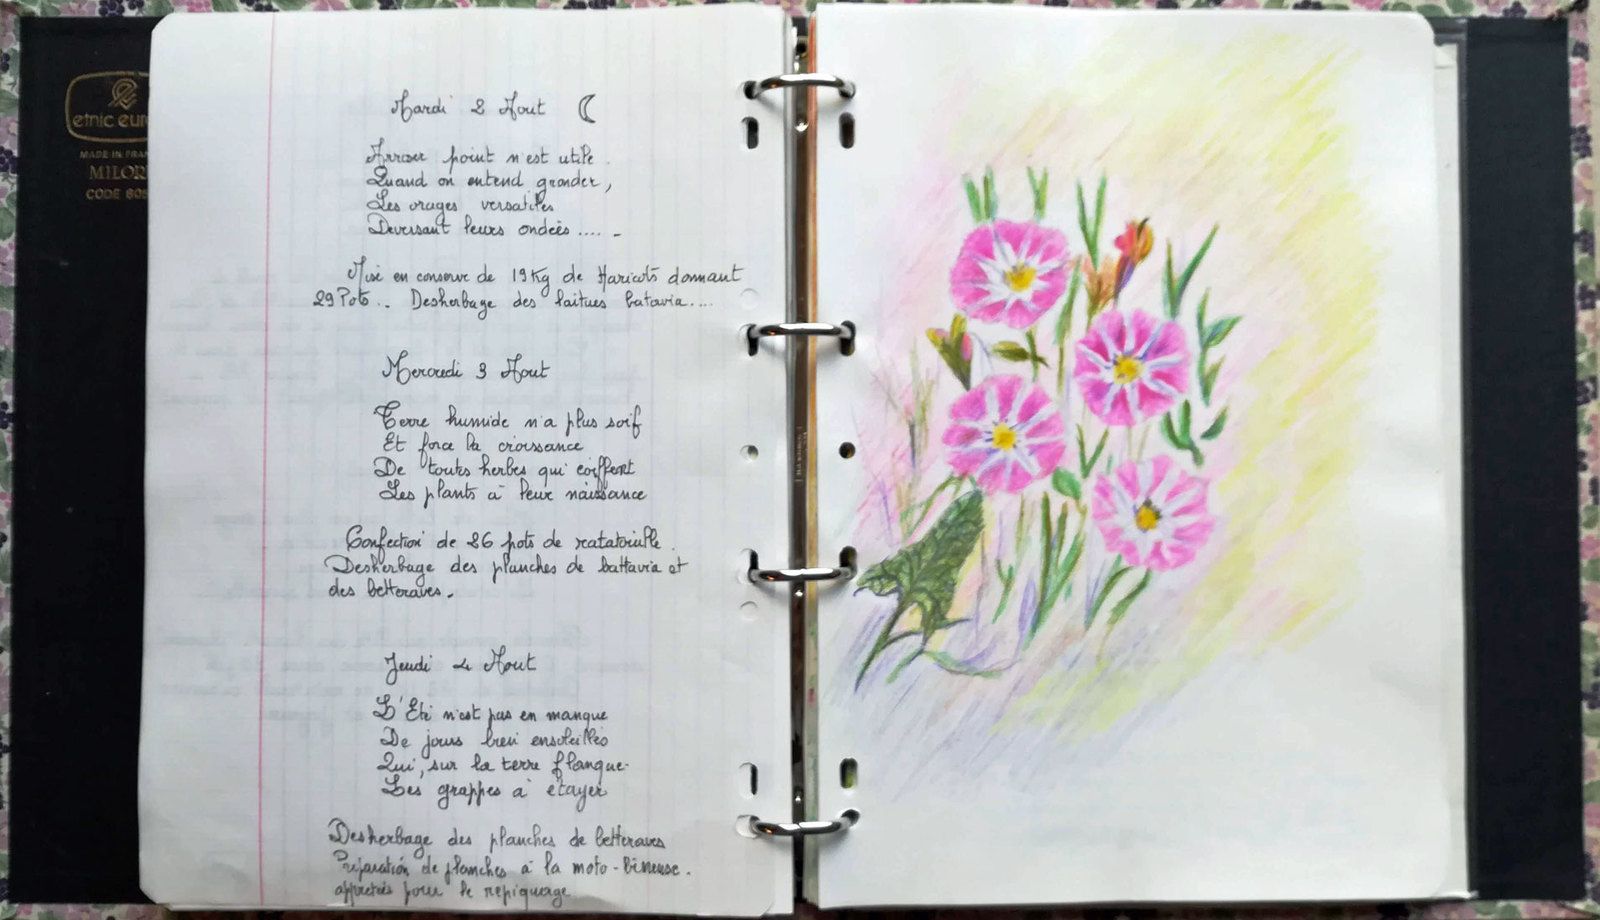 etnic euro
MADE IN FRAN
MILOR
CODE 605
Mardi 2 Aout
Arroser point n'est utile.
Quand on entend gronder,
Les orages versatiles
Deversant leurs ondées.... -
Mise en conserve de 19 Kg de Haricots donnant
29 Pots.. Desherbage des laitues batavia....
Mercredi 3 Aout
Terre humide n'a plus soif
Et force la croissance
De toutes herbes qui coiffent
Les plants à leur naissance
Confection de 26 pots de ratatouille.
Desherbage des planches de battavia et
des betteraves.
Jeudi 4 Aout
L'Eté n'est pas en manque
De jours bien ensoleillés
Qui, sur la terre flanque
Les grappes à étayer
Desherbage des planches de betteraves
Préparation de planches à la moto-bineuse.
pour le repiquage